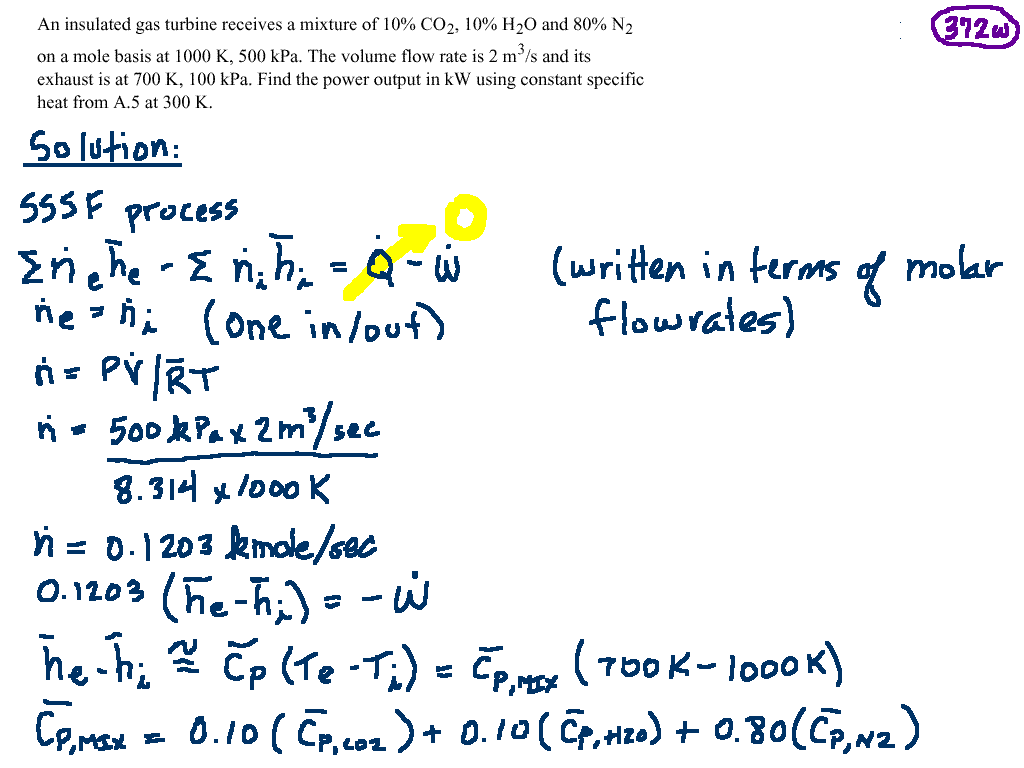 An insulated gas turbine receives a mixture of 10% CO₂, 10% H₂O and 80% N₂
372w
on a mole basis at 1000 K, 500 kPa. The volume flow rate is 2 m³/s and its
exhaust is at 700 K, 100 kPa. Find the power output in kW using constant specific
heat from A.5 at 300 K.
Solution:
SSSF process
O
Σ ṅₑ h̄ₑ - Σ ṅᵢ h̄ᵢ = Q̇ - Ẇ (written in terms of molar
ṅₑ = ṅᵢ (one in/out) flowrates)
ṅ = PV̇/R̄T
ṅ = 500 kPa x 2 m³/sec
8.314 x 1000 K
ṅ = 0.1203 kmole/sec
0.1203 (h̄ₑ - h̄ᵢ) = - Ẇ
h̄ₑ - h̄ᵢ ≅ C̄p (Tₑ - Tᵢ) = C̄p,MIX (700 K - 1000 K)
C̄p,MIX = 0.10 (C̄p,CO2) + 0.10 (C̄p,H2O) + 0.80 (C̄p,N2)